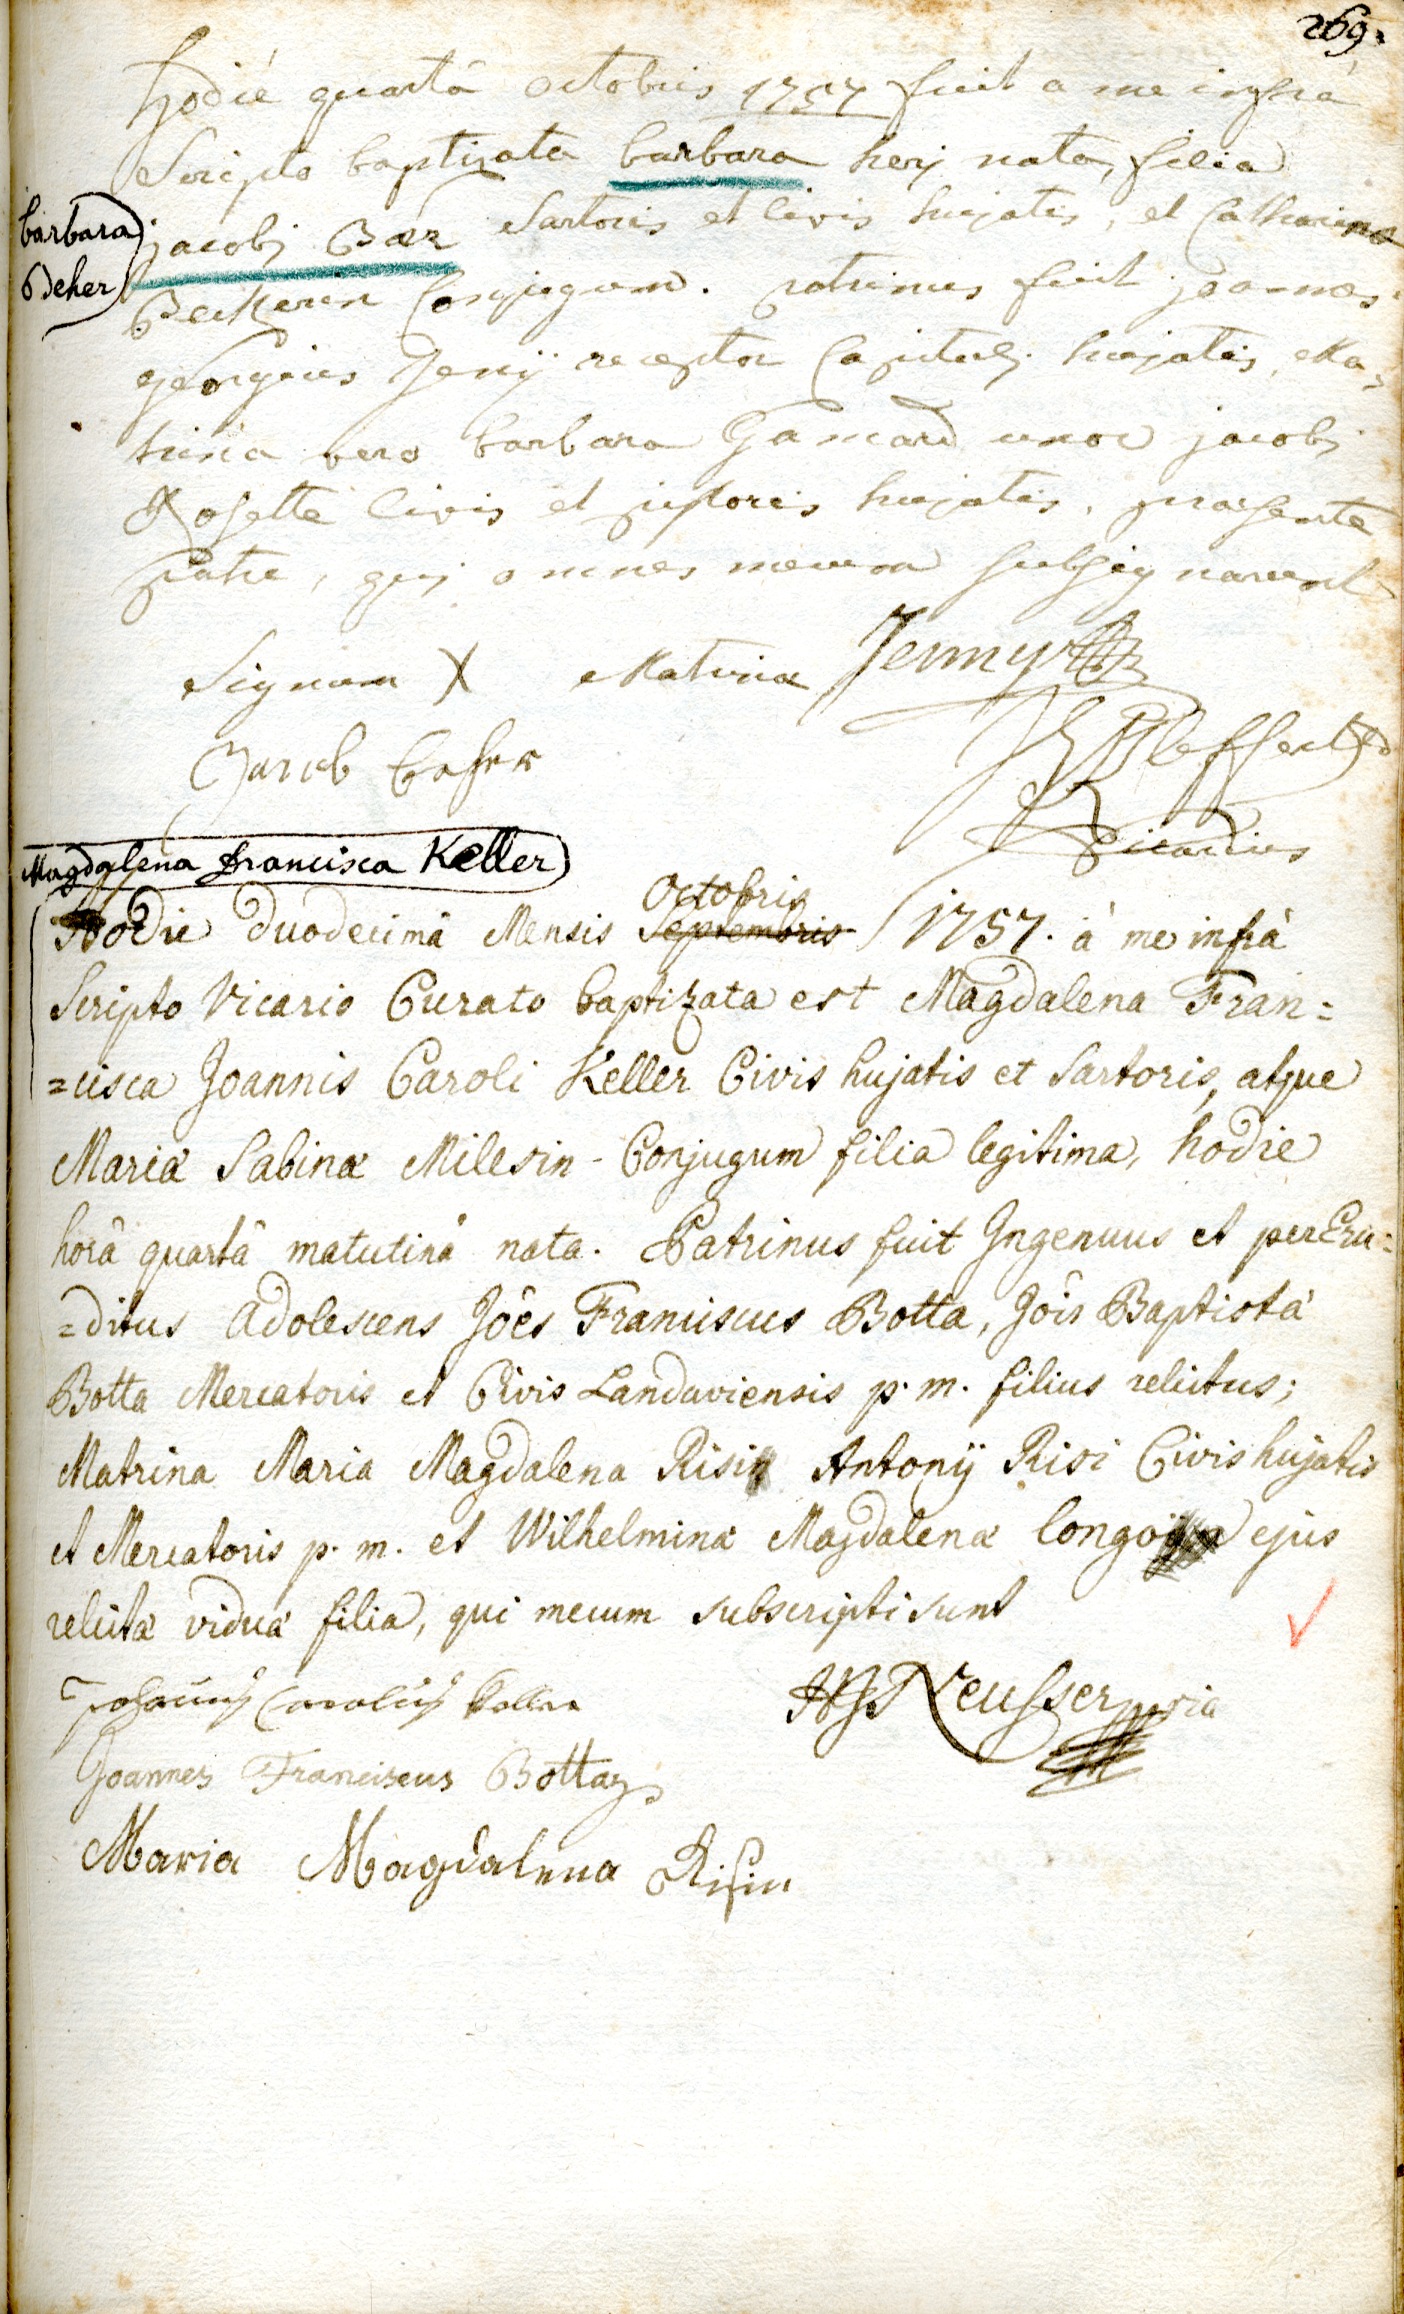 269.
hodie quartâ octobris 1757 fuit a me infrà
Scripto baptizata barbara heri nata, filia
barbara
Beher
jacobj Bær Sartoris et Civis hujatis, et Catharina
Beckerin Conjugum. patrinus fuit joannes
georgius Jenÿ receptor Capituli hujatis, Ma-
trina vero barbara uxor jacobj
Rosette Civis et pistoris hujatis, præsente
patre, qui omnes mecum subsignarunt
Signum X Matrinæ Jenny
Jacob
Vicarius
Magdalena Francisca Keller
Octobris
Hodie duodecimâ Mensis Septembris 1757. à me infrà
Scripto Vicario Curato baptizata est Magdalena Fran=
=cisca Joannis Caroli Keller Civis hujatis et Sartoris, atque
Mariæ Sabinæ Milesin Conjugum filia legitima, hodie
horâ quartâ matutinâ nata. Patrinus fuit Ingenuus et perEru=
=ditus Adolescens Jôes Franciscus Botta, Jôis Baptistæ
Botta Mercatoris et Civis Landaviensis p. m. filius relictus;
Matrina Maria Magdalena Risin Antonÿ Risi Civis hujatis
et Mercatoris p. m. et Wilhelminæ Magdalenæ ejus
relictæ viduæ filia, qui mecum subscripti sunt
Carolus Keller Neusser
Joannes Franciscus Botta
Maria Magdalena Risin